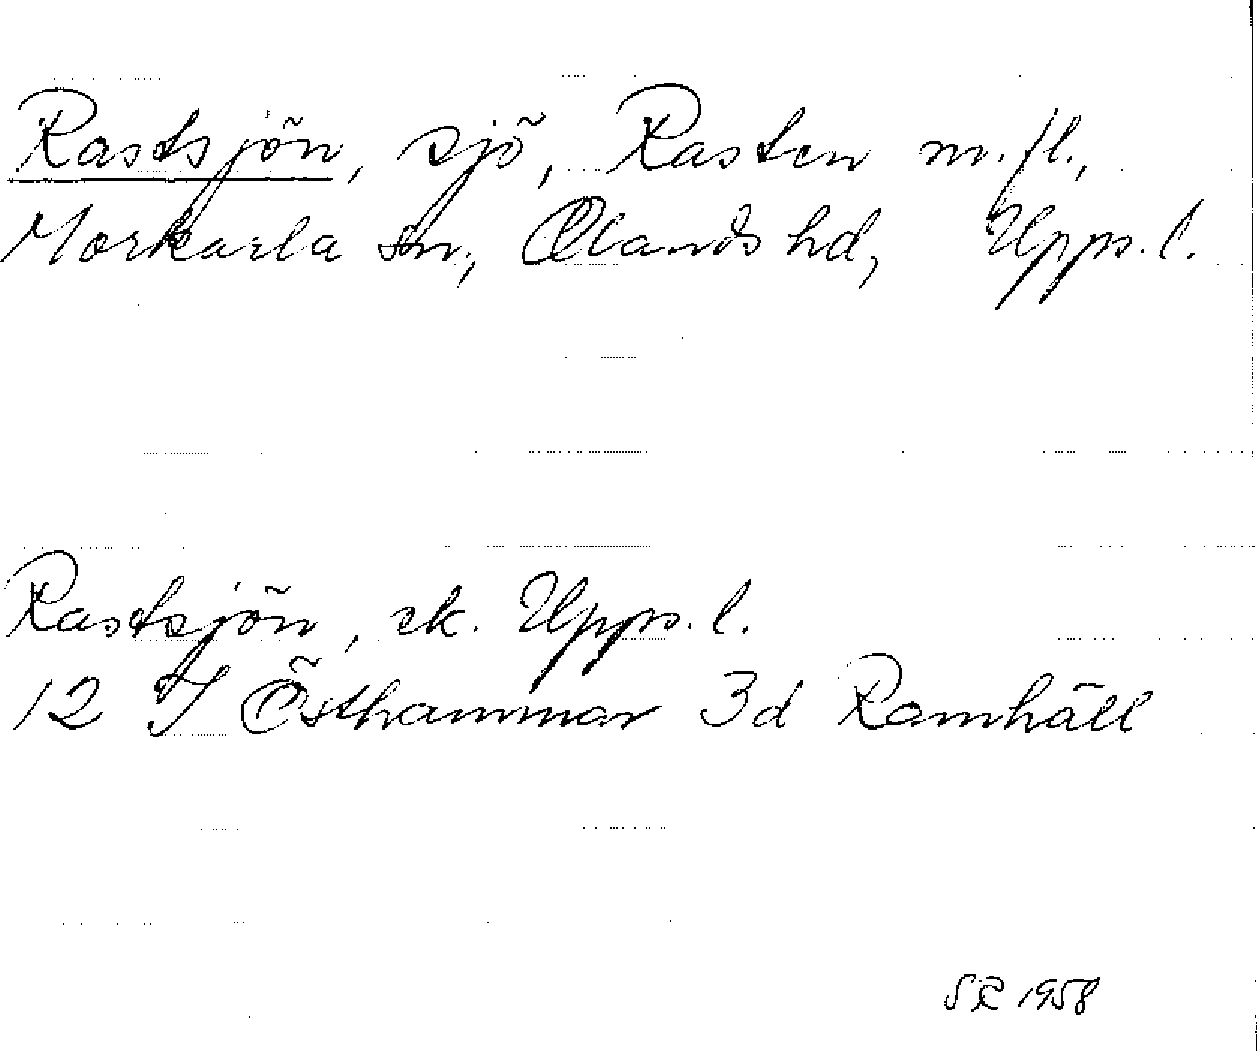 Rastsjön, sjö, Rasten m.fl.,
Morkarla sn, Olands hd, Upps. l.
Rastsjön, ek. Upps. l.
12 I Östhammar 3d Ramhäll
SR 1958